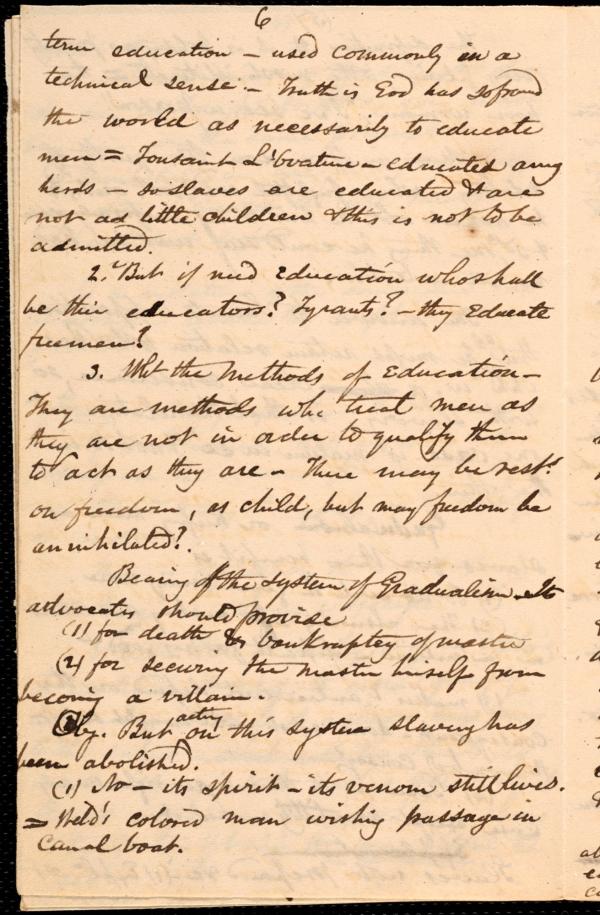 6
term education - used commonly in a
technical sense - Truth is God has so framd
the world as necessarily to educate
men = Tousaint L'Ovature - educated amg
herds - so slaves are educated & are
not as little children & this is not to be
admitted.
2. But if need education who shall
be their educators? Tyrants? - they educate
freemen?
3. Wht the methods of education -
They are methods whc treat men as
they are not in order to qualify them
to act as they are - There may be rest.
on freedom, as child, but may freedom be
annihilated?.
Bearing of the system of Gradualism - Its
advocates should provide
(1) for death & bankruptcy of master
(2) for securing the master himself from
becoming a villain.
Obj. But acting on this system slavery has
been abolished.
(1) No - its spirit - its venom still lives.
= Weld's colored man wishing passage in
canal boat.